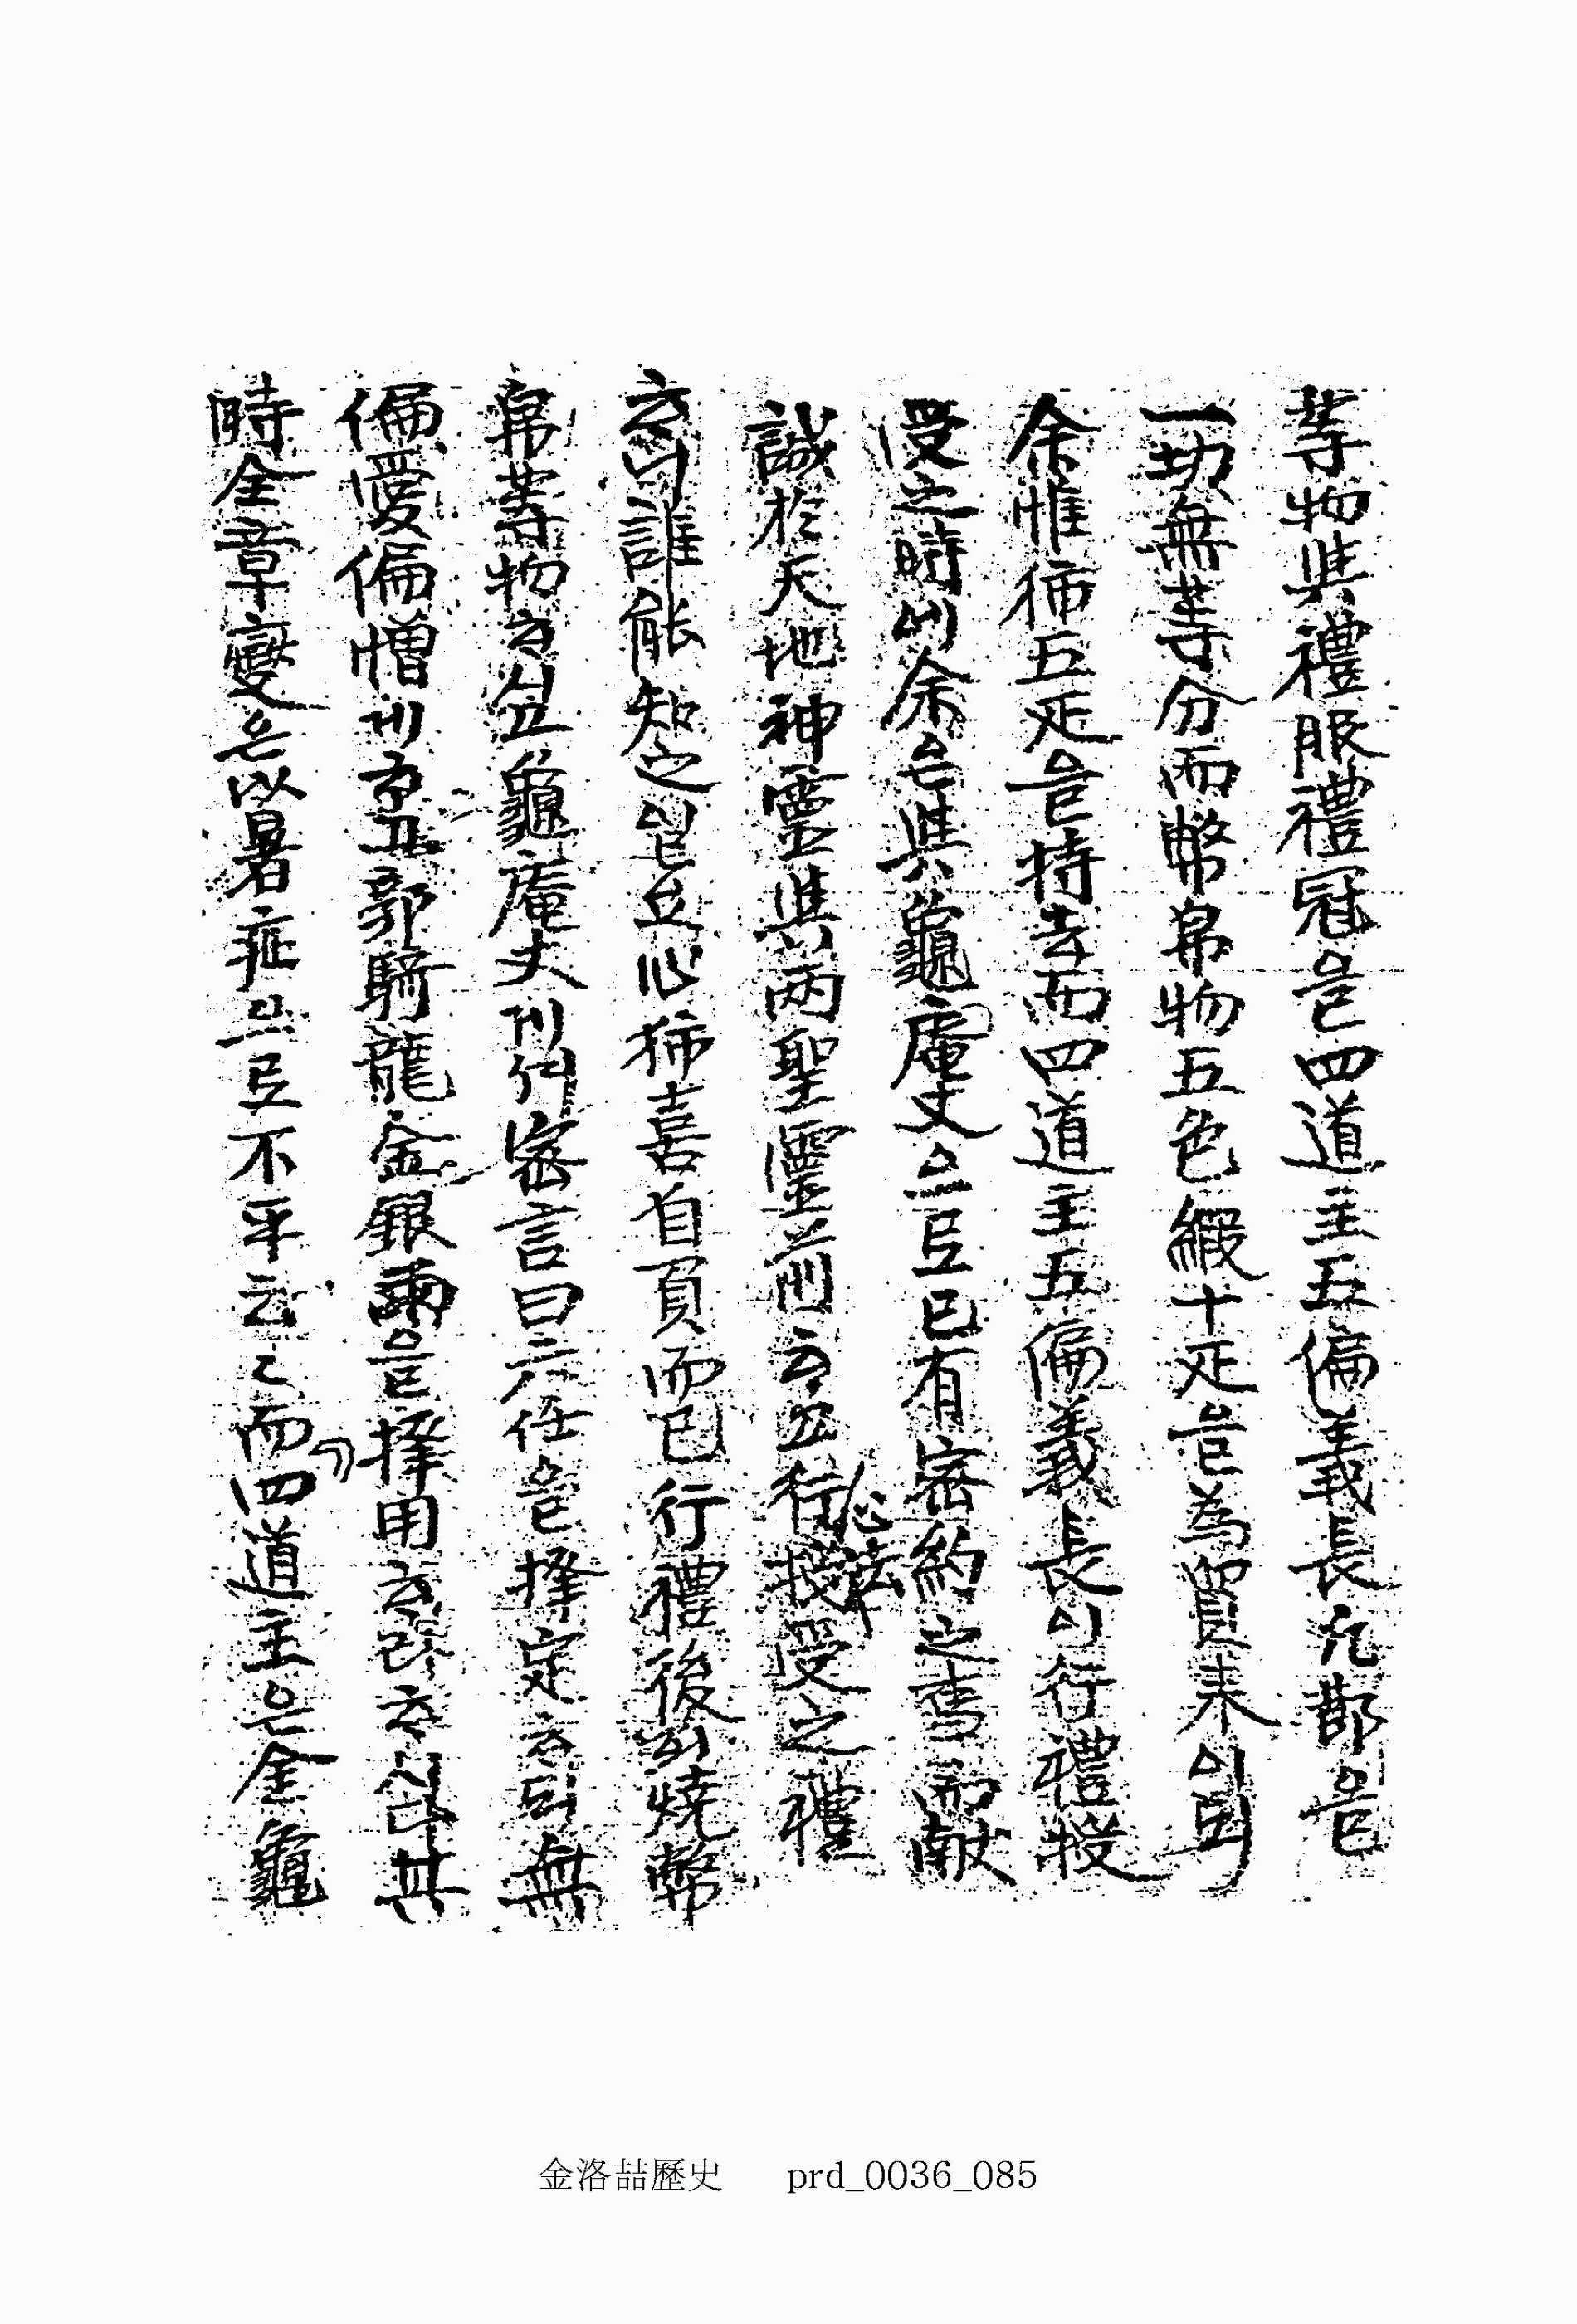 等物與禮服禮冠을四道主五偏義長凡都을
一切無等分而幣帛物五色緞十疋을為買來이되
余惟 五疋을持去而四道主五偏義長이行禮授
受之時애余은與龜庵丈으로已有密約之書而献
誠於天地神靈與兩聖靈前하고行心法授受之禮
하니誰能知之리고心 喜自負而已行禮後에燒幣
帛等物하시고龜庵丈게 密言曰六任을擇定하되無
偏愛偏憎게하고郭騎龍金銀雨을擇用하라하시다其
時全章燮은以暑症으로不平云〻而四道主은金龜
金洛喆歷史 prd_0036_085